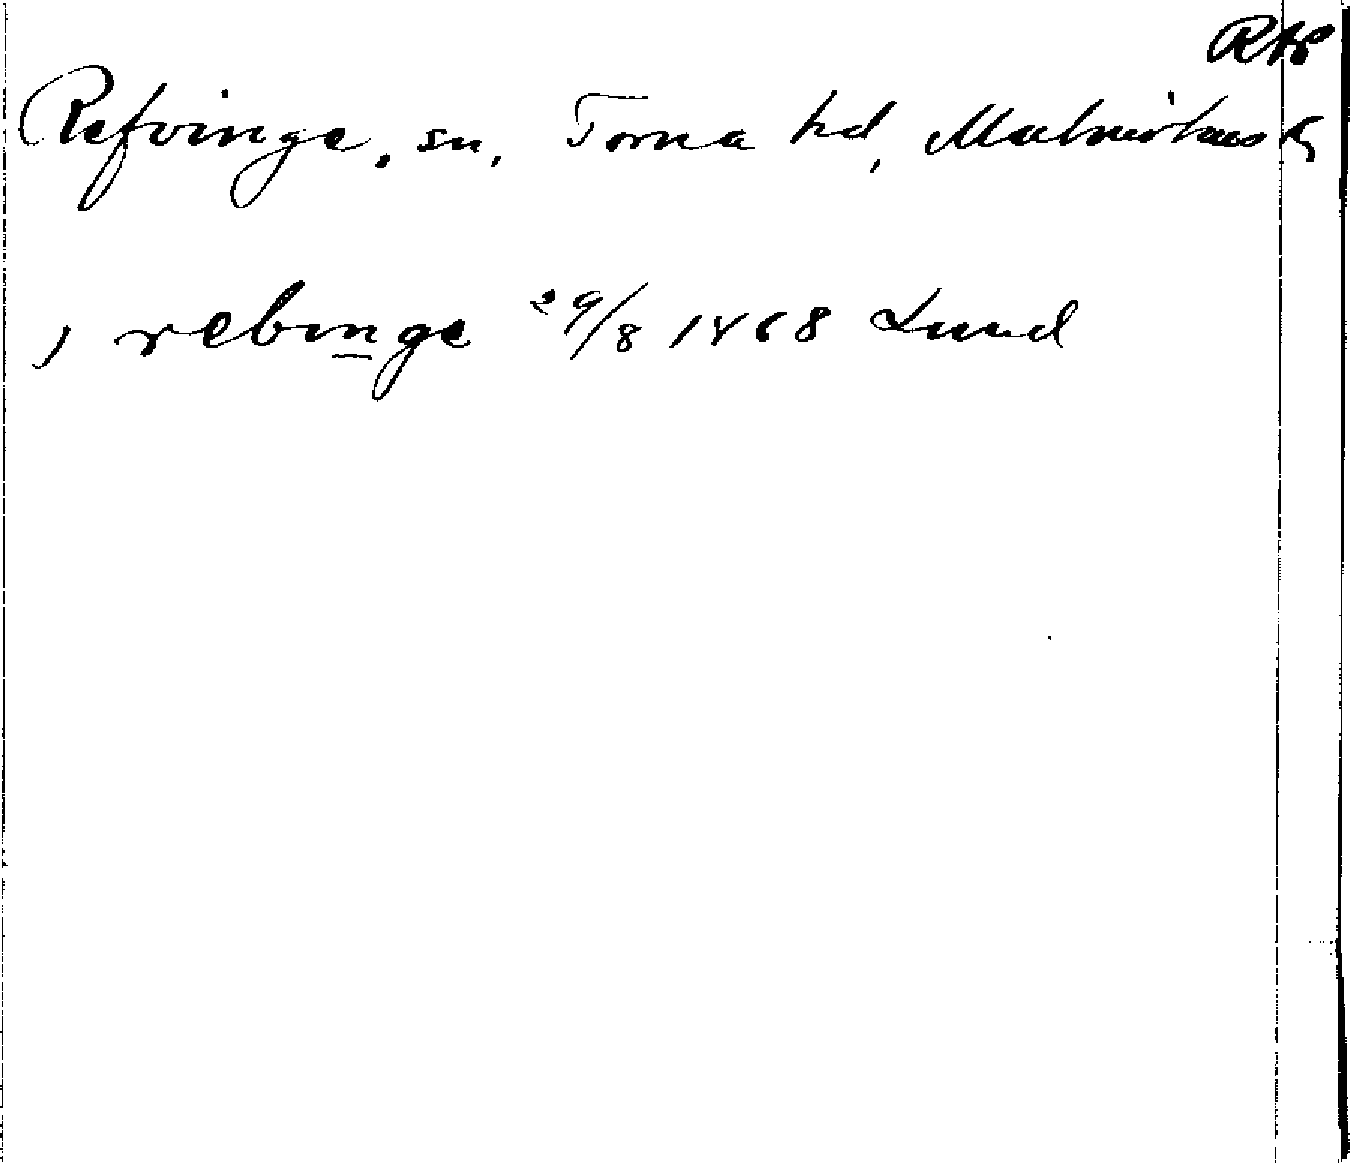 RAP
Refvinge, sn, Torna hd, Malmöhus
, rebinge 29/8 1868 Lund